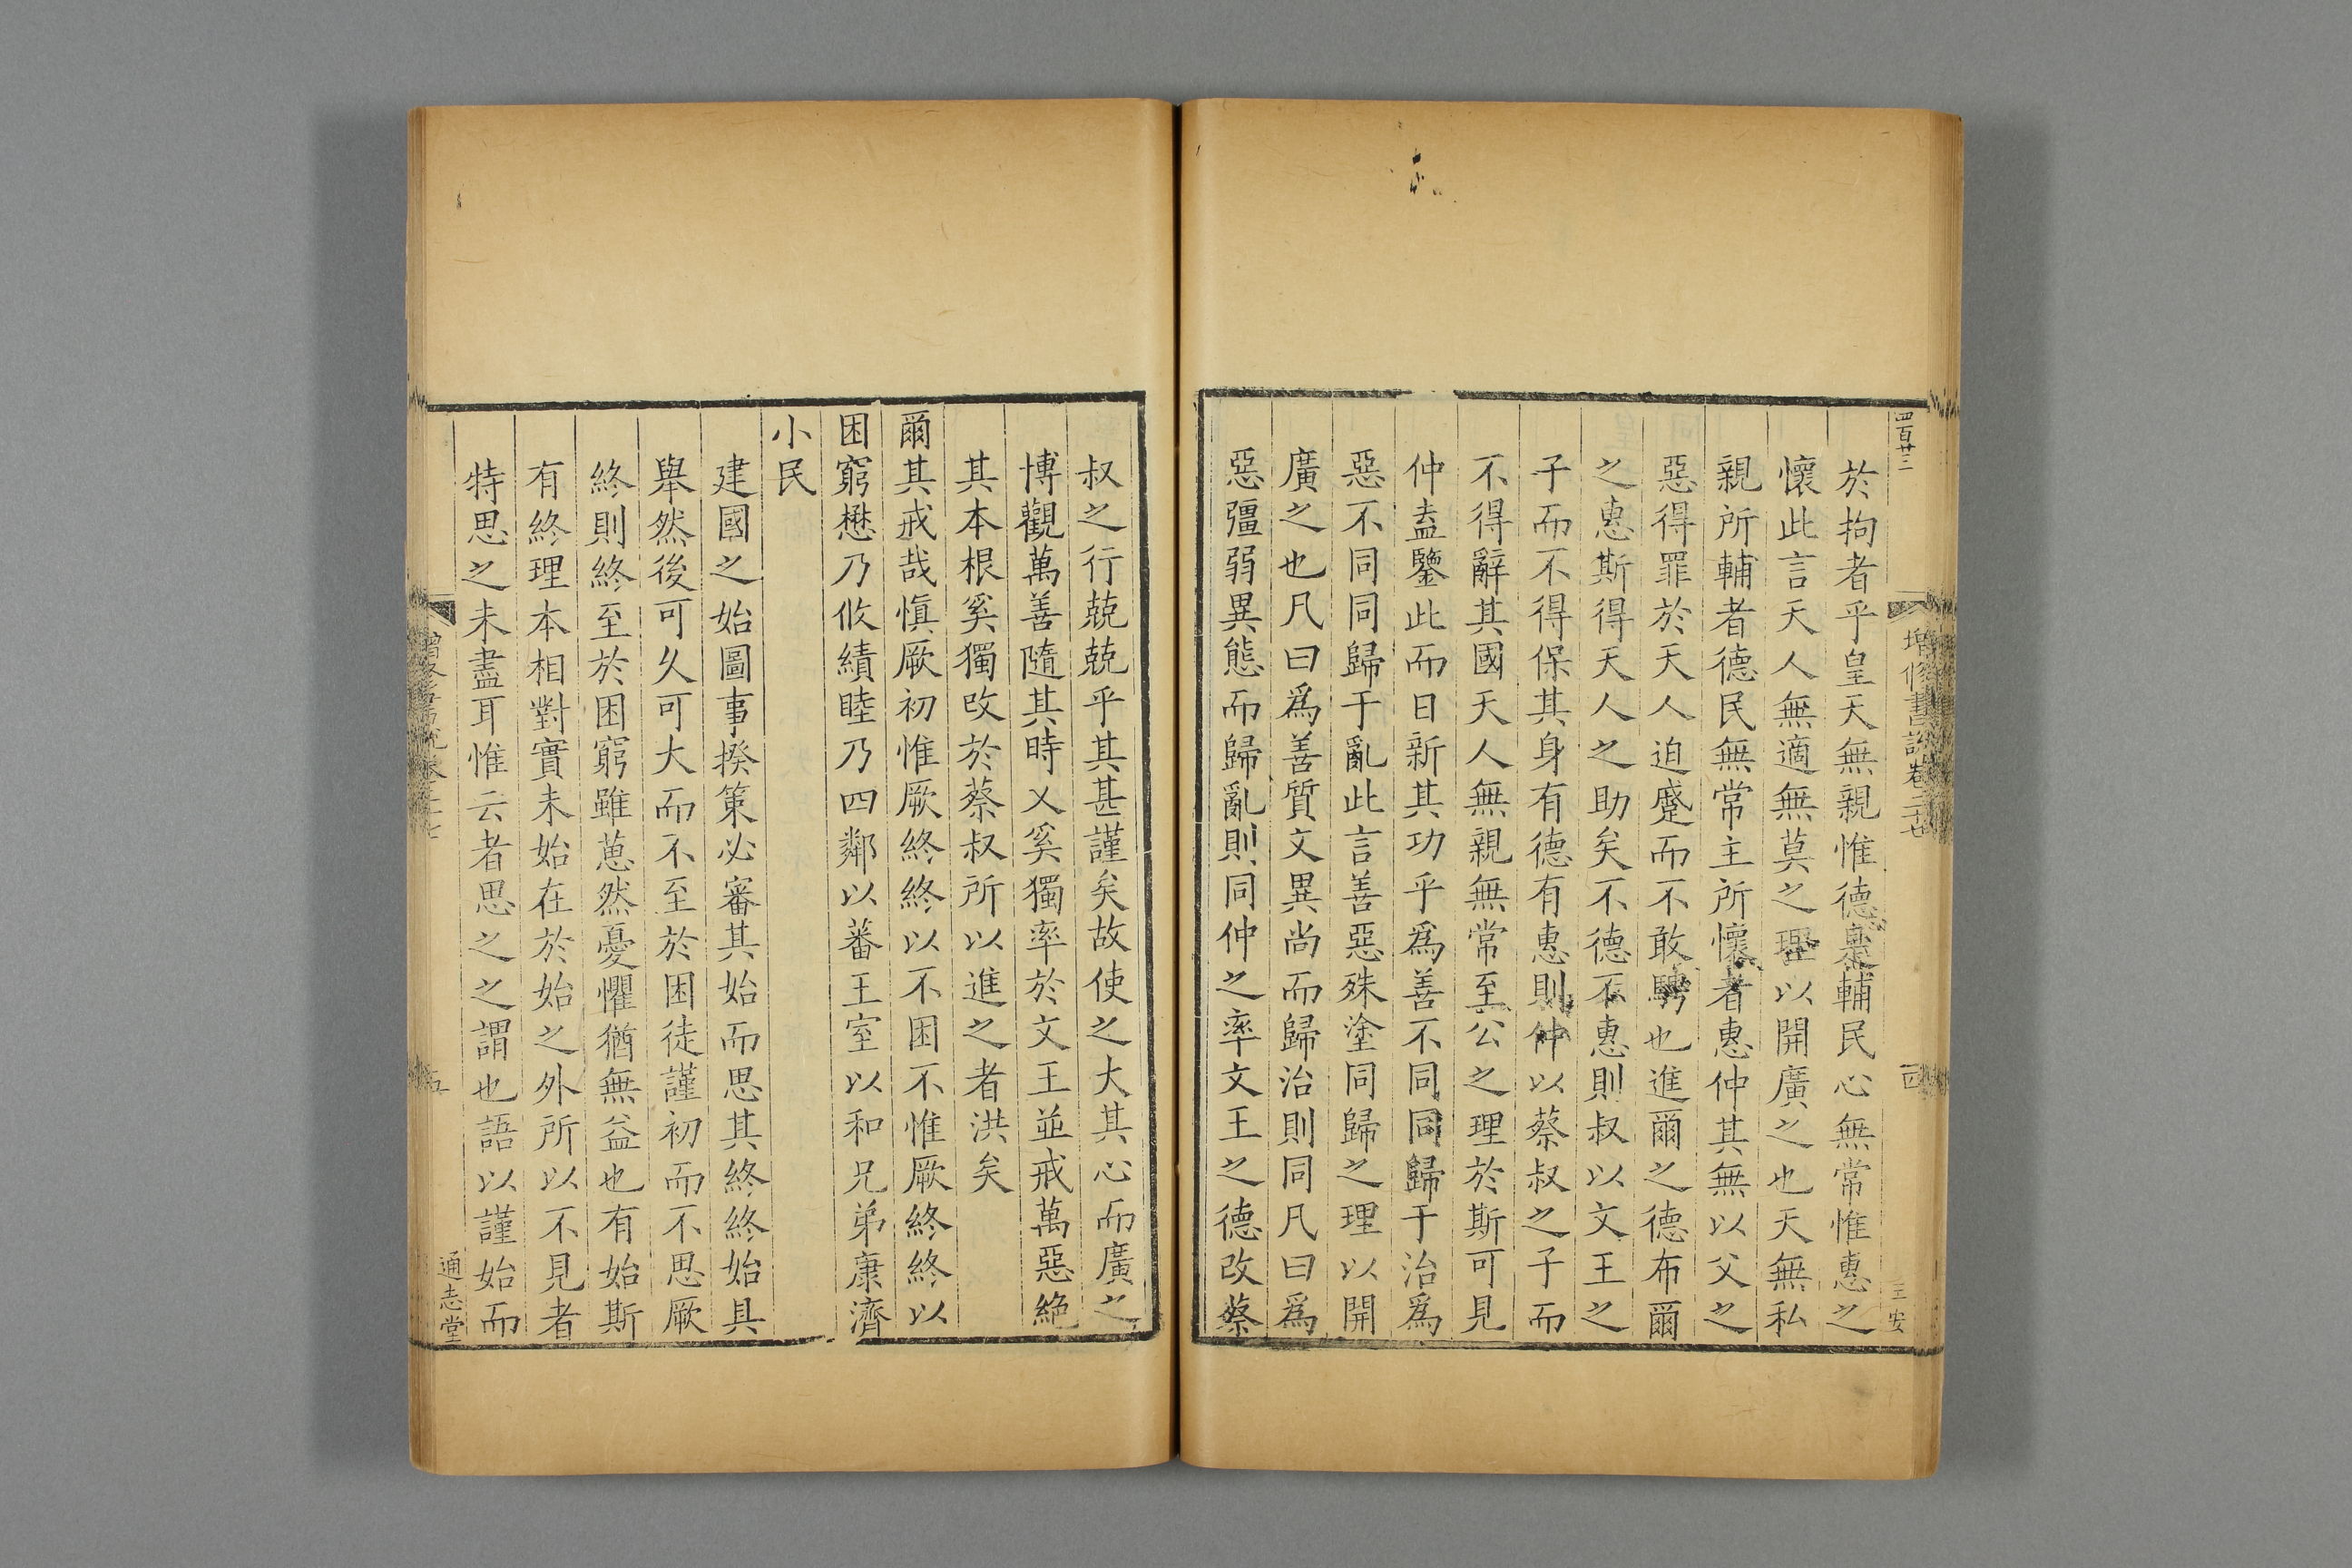 四百廿三
增修書說卷二十七
四
王安
於拘者乎皇天無親惟德是輔民心無常惟惠之
懷此言天人無適無莫之理以開廣之也天無私
親所輔者德民無常主所懷者惠仲其無以父之
惡得罪於天人迫蹙而不敢騁也進爾之德布爾
之惠斯得天人之助矣不德不惠則叔以文王之
子而不得保其身有德有惠則仲以蔡叔之子而
不得辭其國天人無親無常至公之理於斯可見
仲盍鑒此而日新其功乎爲善不同同歸于治爲
惡不同同歸于亂此言善惡殊塗同歸之理以開
廣之也凡曰爲善質文異尚而歸治則同凡曰爲
惡彊弱異態而歸亂則同仲之率文王之德改蔡
叔之行兢兢乎其甚謹矣故使之大其心而廣之
博觀萬善隨其時乂奚獨率於文王並戒萬惡絕
其本根奚獨改於蔡叔所以進之者洪矣
爾其戒哉愼厥初惟厥終終以不困不惟厥終終以
困窮懋乃攸績睦乃四鄰以蕃王室以和兄弟康濟
小民
建國之始圖事揆策必審其始而思其終終始具
舉然後可久可大而不至於困徒謹初而不思厥
終則終至於困窮雖蒽然憂懼猶無益也有始斯
有終理本相對實未始在於始之外所以不見者
特思之未盡耳惟云者思之之謂也語以謹始而
五
通志堂